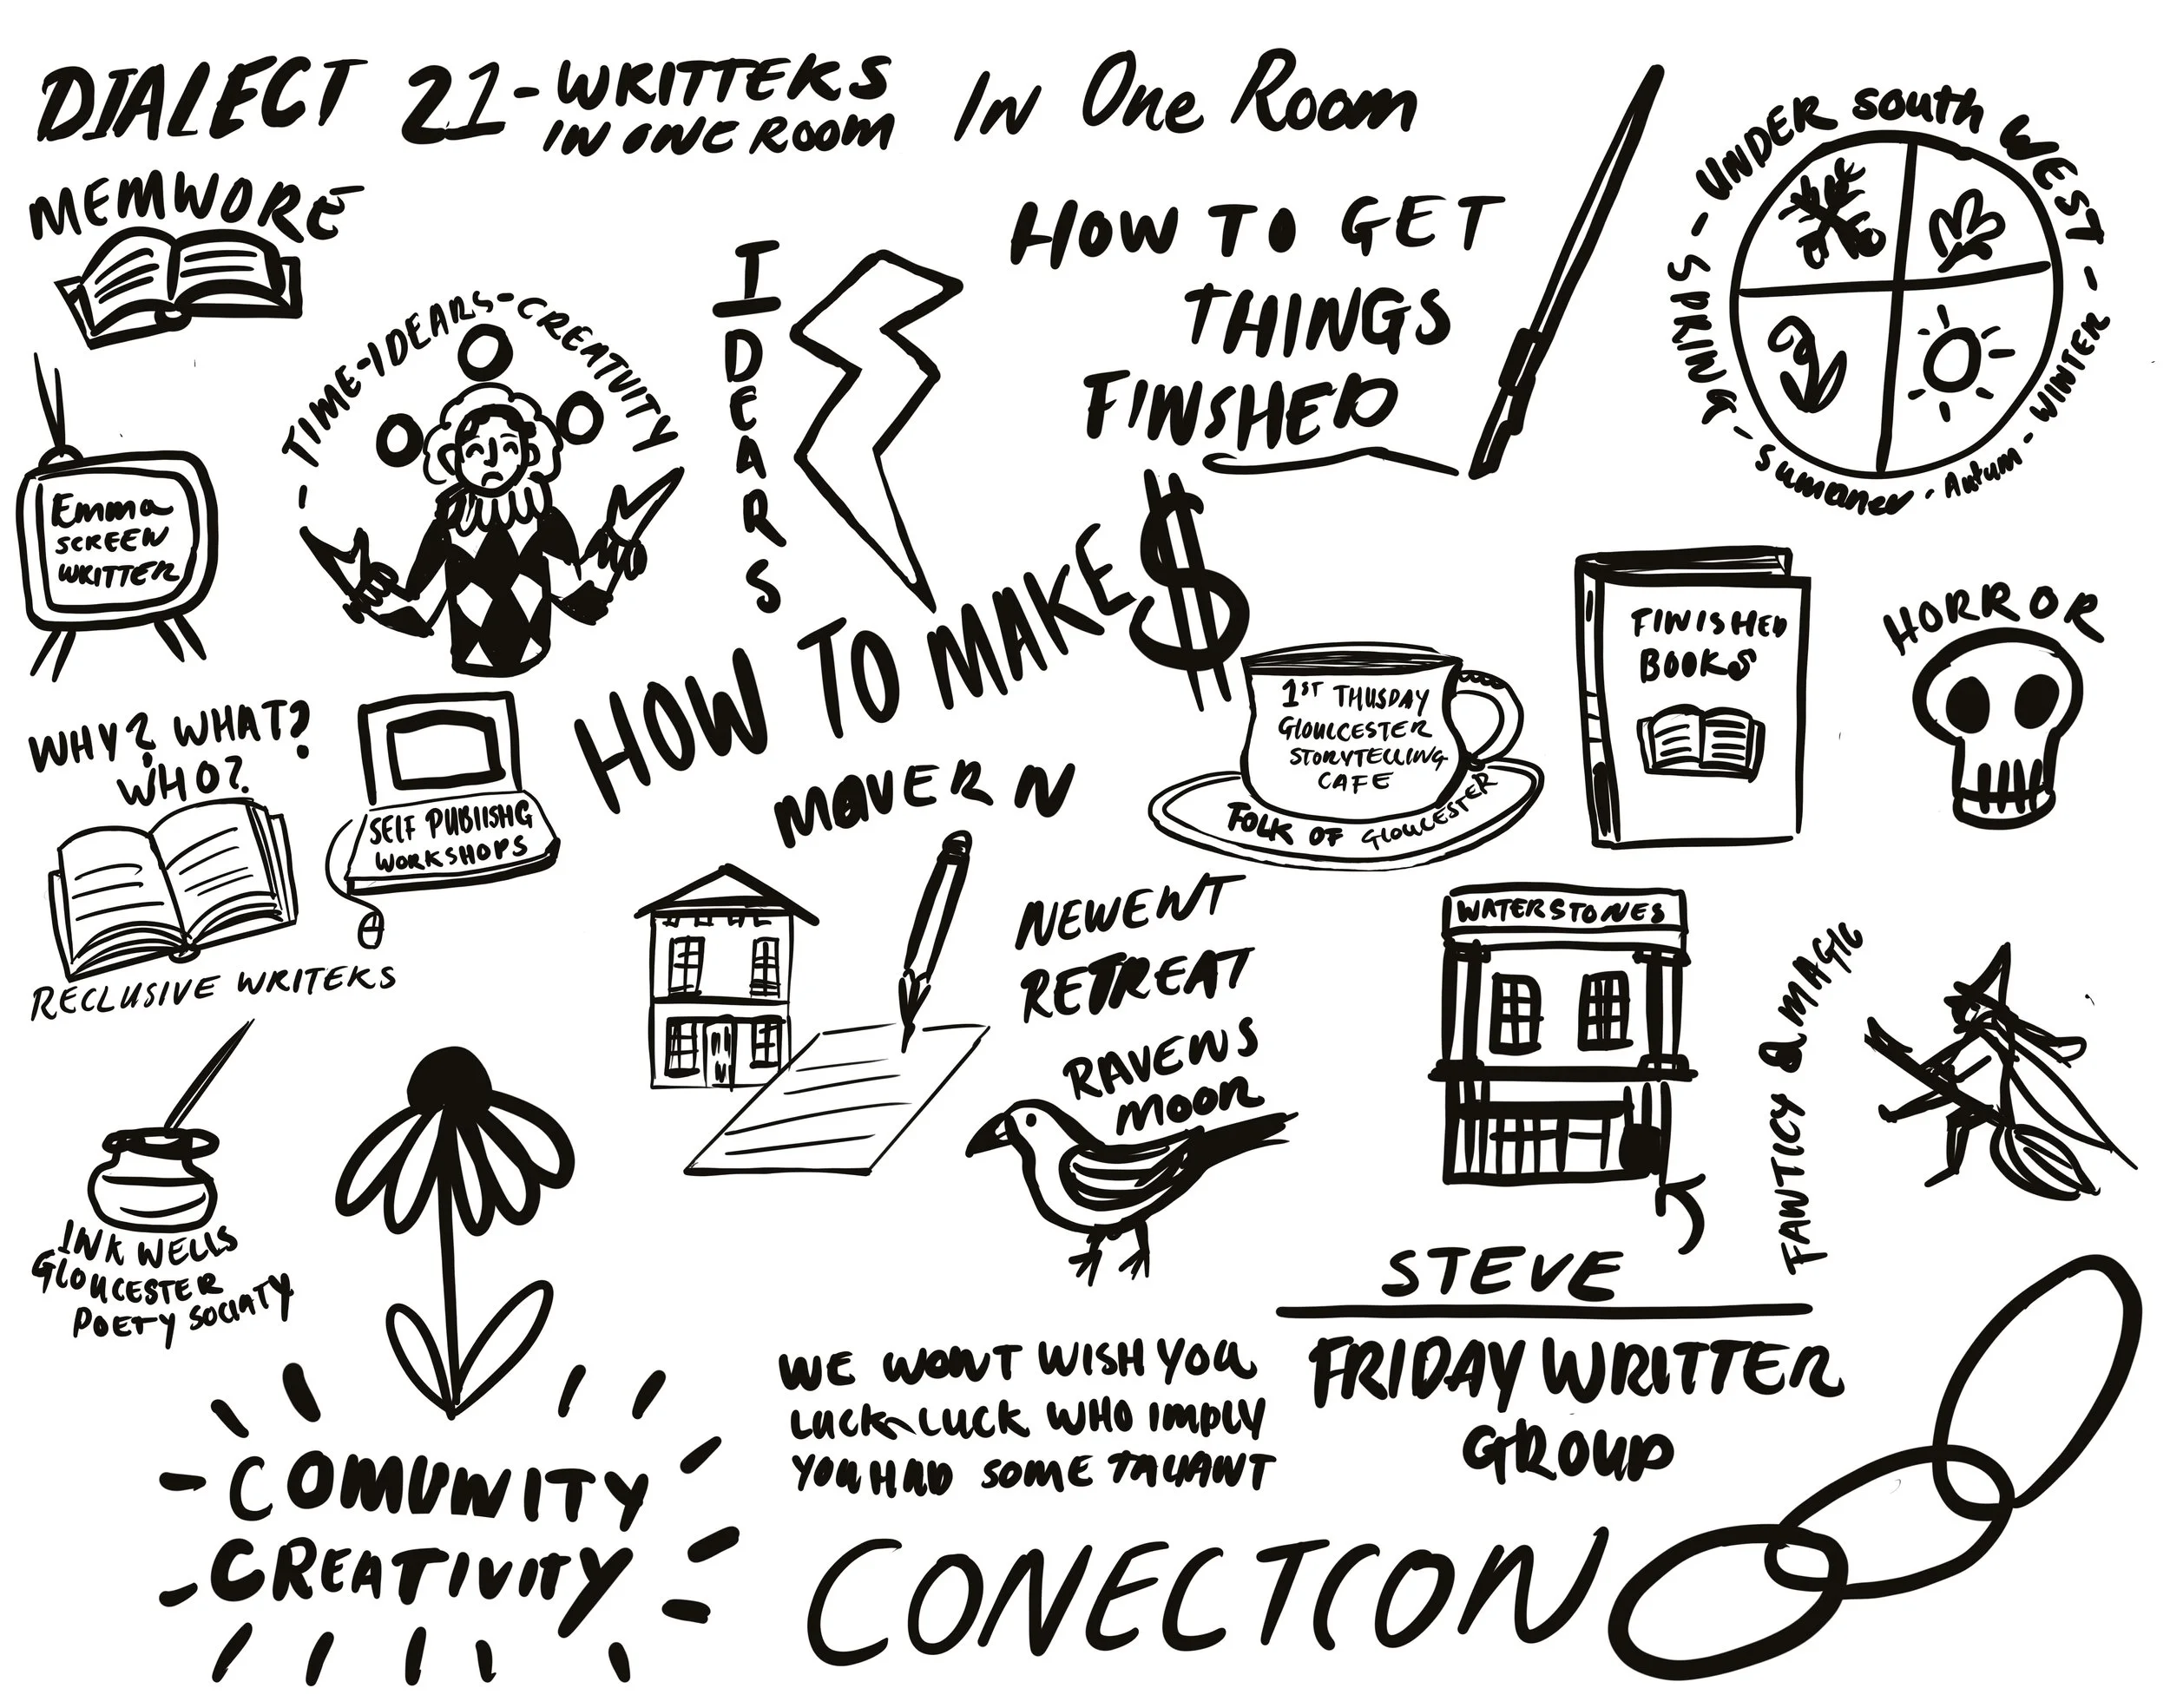 DIALECT 21-WRITTEKS
IN ONE ROOM
In One Room
MEMWORE
HOW TO GET
THINGS
FINSHED
- UNDER SOUTH WEST -
WINTER -
Autum -
Summer -
TIME-IDEARS-CREATIVITY
IDEARS
Emma
SCREEN
WRITTER
HOW TO MAKE $
MOVER N
1ST THUSDAY
GLOUCCESTER
STORYTELLING
CAFE
FOLK OF GLOUCESTER
FINISHED
BOOKS
HORROR
WHY? WHAT?
WHO?
RECLUSIVE WRITEKS
SELF PUBLISHG
WORKSHOPS
NEWENT
RETREAT
RAVENS
MOON
WATERSTONES
FANTICY & MAGIC
INK WELLS
GLOUCESTER
POETY SOCIATY
STEVE
FRIDAY WRITTER
GROUP
WE WONT WISH YOU
LUCK-LUCK WHO IMPLY
YOU HAD SOME TALIANT
COMUNITY
CREATIVITY
CONECTION